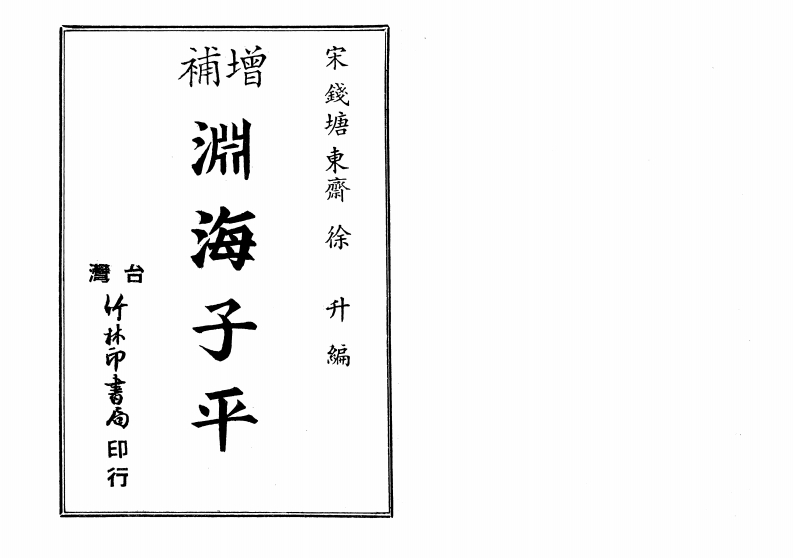 宋錢塘東齋徐升編
增補
淵海子平
台灣
竹林印書局印行